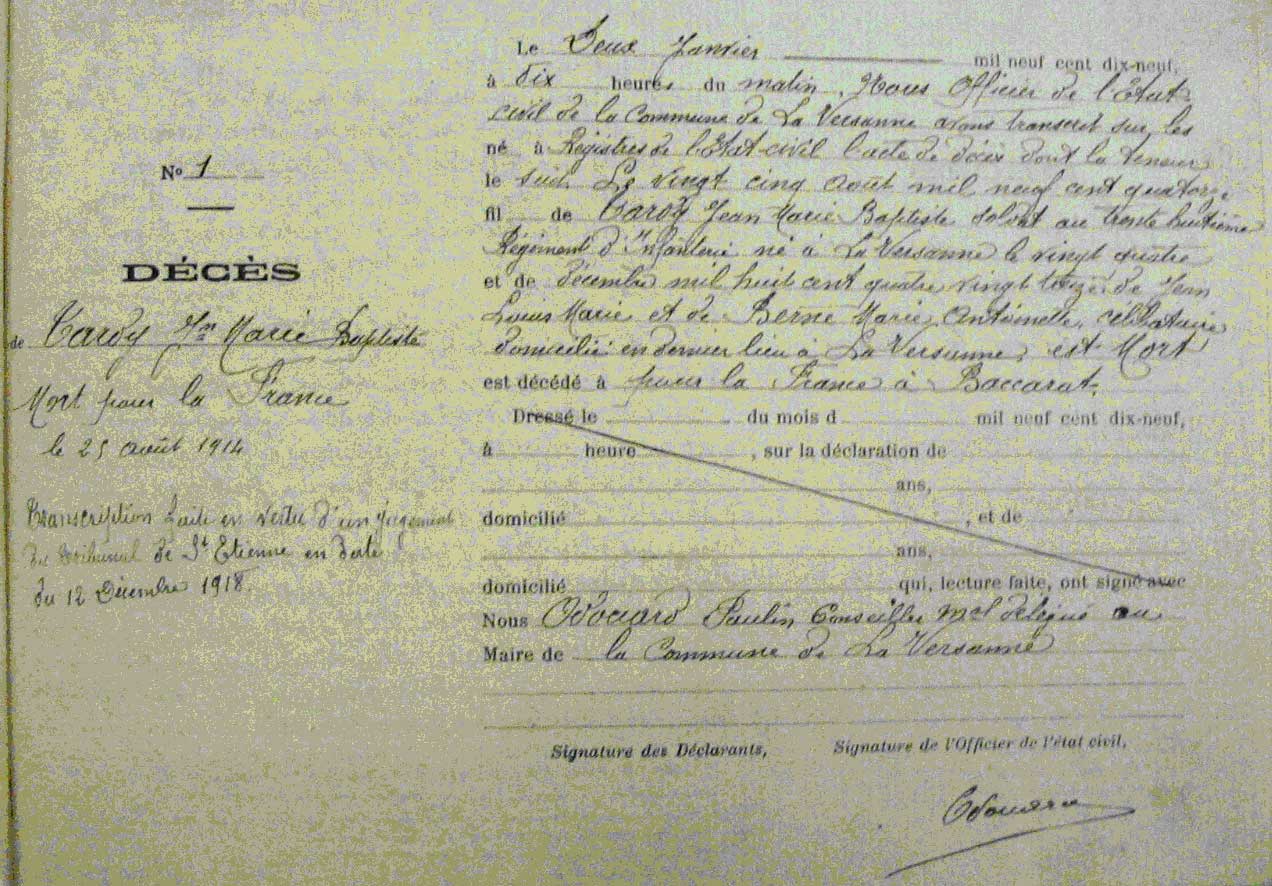 N° 1
DÉCÈS
de Tardy Jn Marie Baptiste
Mort pour la France
le 25 août 1914
Transcription faite en vertu d'un jugement
du tribunal de St Etienne en date
du 12 Décembre 1918.
Le Deux Janvier mil neuf cent dix-neuf,
à dix heures du matin, Nous Officier de l'État
civil de la Commune de La Versanne avons transcrit sur les
né à Régistres de l'Etat-civil l'acte de décès dont la teneur
le suit. Le vingt cinq août mil neuf cent quatorze
fil de Tardy Jean Marie Baptiste soldat au trente huitième
Régiment d'Infanterie né à La Versanne le vingt quatre
et de décembre mil huit cent quatre vingt treize de Jean
Louis Marie et de Berne Marie Antoinette, célibataire
domicilié en dernier lieu à La Versanne, est Mort
est décédé à pour la France à Baccarat.
Dressé le du mois d mil neuf cent dix-neuf,
à heure , sur la déclaration de
ans,
domicilié , et de
ans,
domicilié qui, lecture faite, ont signé avec
Nous Odouard Paulin Conseiller mcl délégué au
Maire de la Commune de La Versanne
Signature des Déclarants, Signature de l'Officier de l'état civil,
Odouard